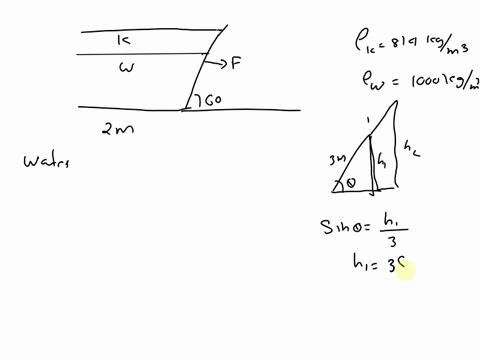 K
W
F
60
2m
Water
ρ_K = 819 kg/m3
ρ_W = 1000 kg/m3
1
3m
h1
h2
θ
Sin θ = h1/3
h1 = 3S